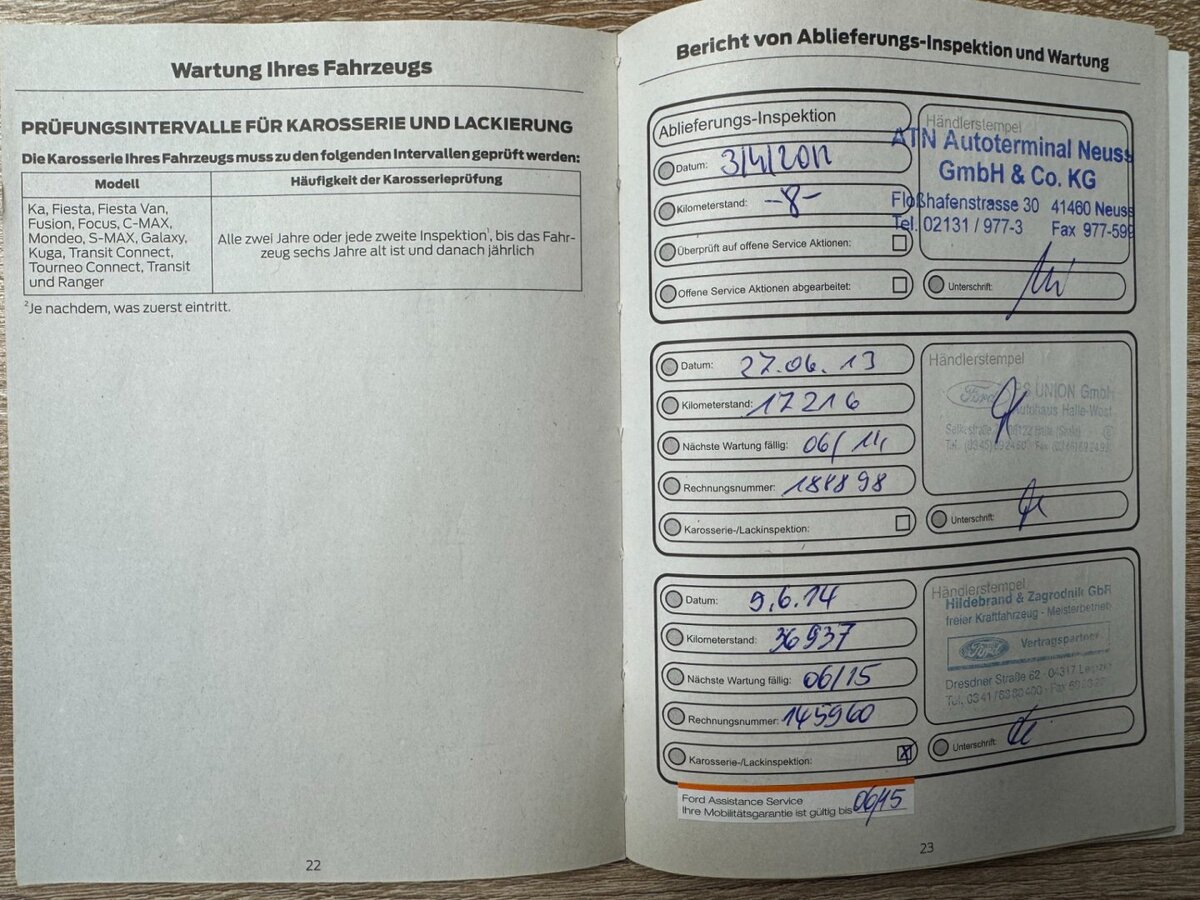 Wartung Ihres Fahrzeugs
PRÜFUNGSINTERVALLE FÜR KAROSSERIE UND LACKIERUNG
Die Karosserie Ihres Fahrzeugs muss zu den folgenden Intervallen geprüft werden:
Modell
Häufigkeit der Karosserieprüfung
Ka, Fiesta, Fiesta Van,
Fusion, Focus, C-MAX,
Mondeo, S-MAX, Galaxy,
Kuga, Transit Connect,
Tourneo Connect, Transit
und Ranger
Alle zwei Jahre oder jede zweite Inspektion¹, bis das Fahr-
zeug sechs Jahre alt ist und danach jährlich
²Je nachdem, was zuerst eintritt.
22
Bericht von Ablieferungs-Inspektion und Wartung
Ablieferungs-Inspektion
Datum: 3/4/2012
Kilometerstand: -8-
Überprüft auf offene Service Aktionen:
Offene Service Aktionen abgearbeitet:
Händlerstempel
ATN Autoterminal Neuss
GmbH & Co. KG
Floßhafenstrasse 30 41460 Neuss
Tel. 02131 / 977-3 Fax 977-599
Unterschrift:
Datum: 27.06.13
Kilometerstand: 17216
Nächste Wartung fällig: 06/14
Rechnungsnummer: 188898
Karosserie-/Lackinspektion:
Händlerstempel
Ford
UNION GmbH
Autohaus Halle-West
Unterschrift:
Datum: 9.6.14
Kilometerstand: 36937
Nächste Wartung fällig: 06/15
Rechnungsnummer: 145960
Karosserie-/Lackinspektion: X
Händlerstempel
Hildebrand & Zagrodnik GbR
freier Kraftfahrzeug - Meisterbetrieb
Ford Vertragspartner
Dresdner Straße 62 04317 Leipzig
Unterschrift:
Ford Assistance Service
Ihre Mobilitätsgarantie ist gültig bis 06/15
23